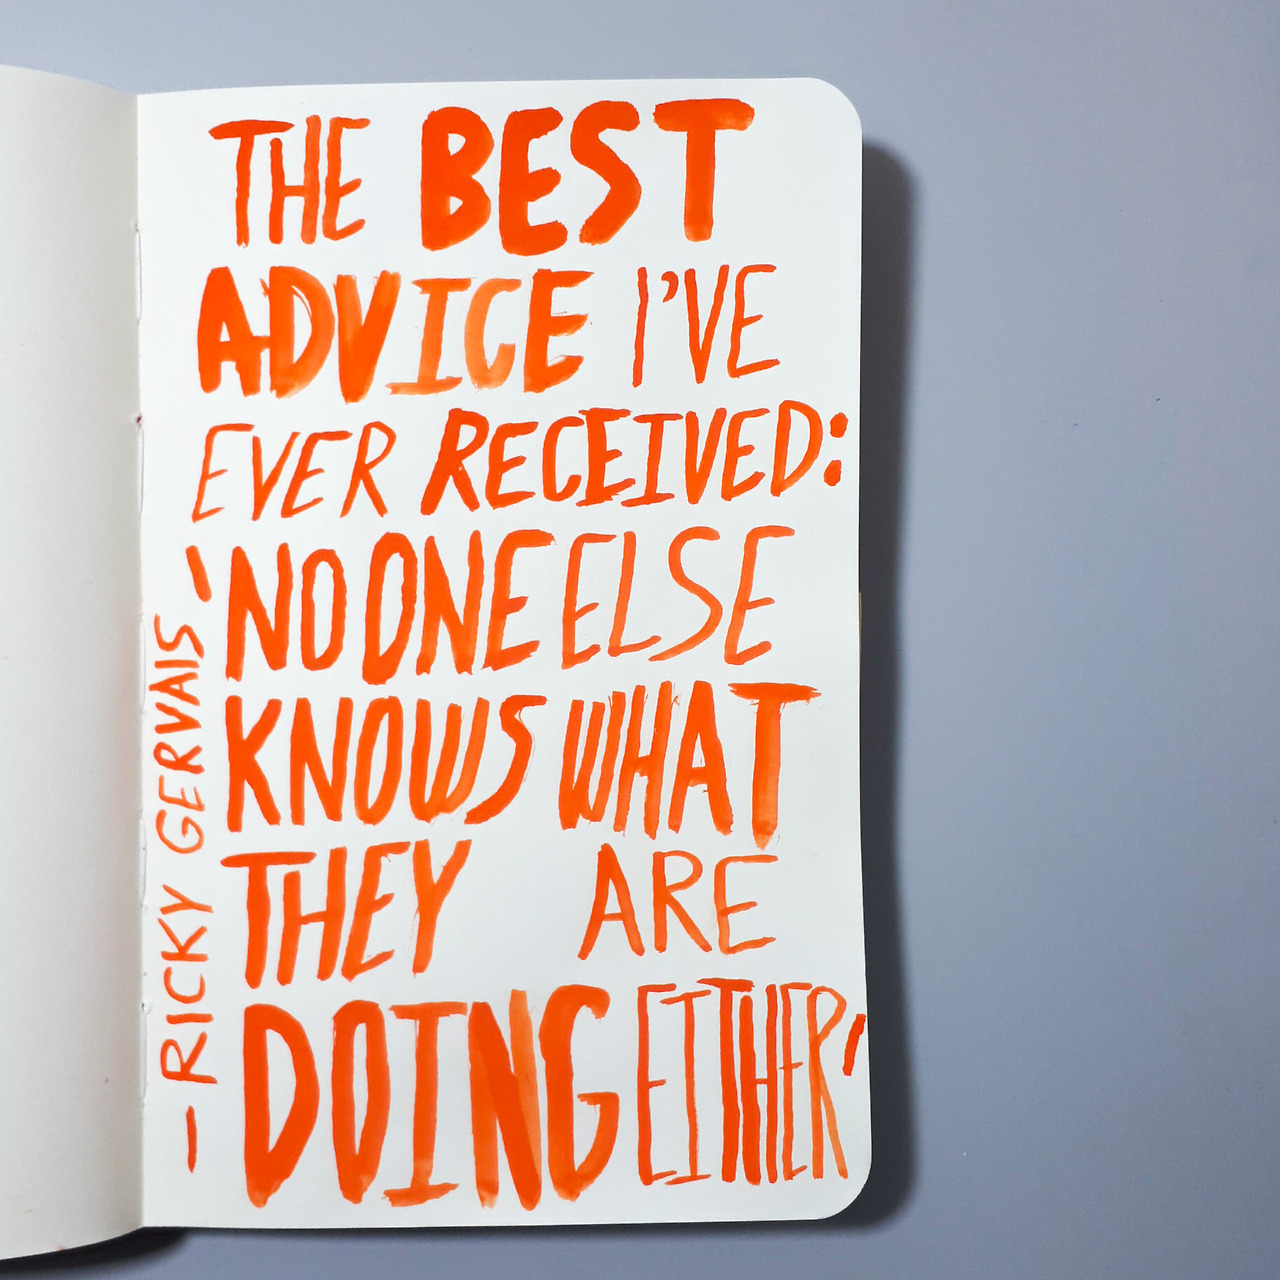 THE BEST
ADVICE I'VE
EVER RECEIVED:
'NO ONE ELSE
KNOWS WHAT
THEY ARE
DOING EITHER'
- RICKY GERVAIS